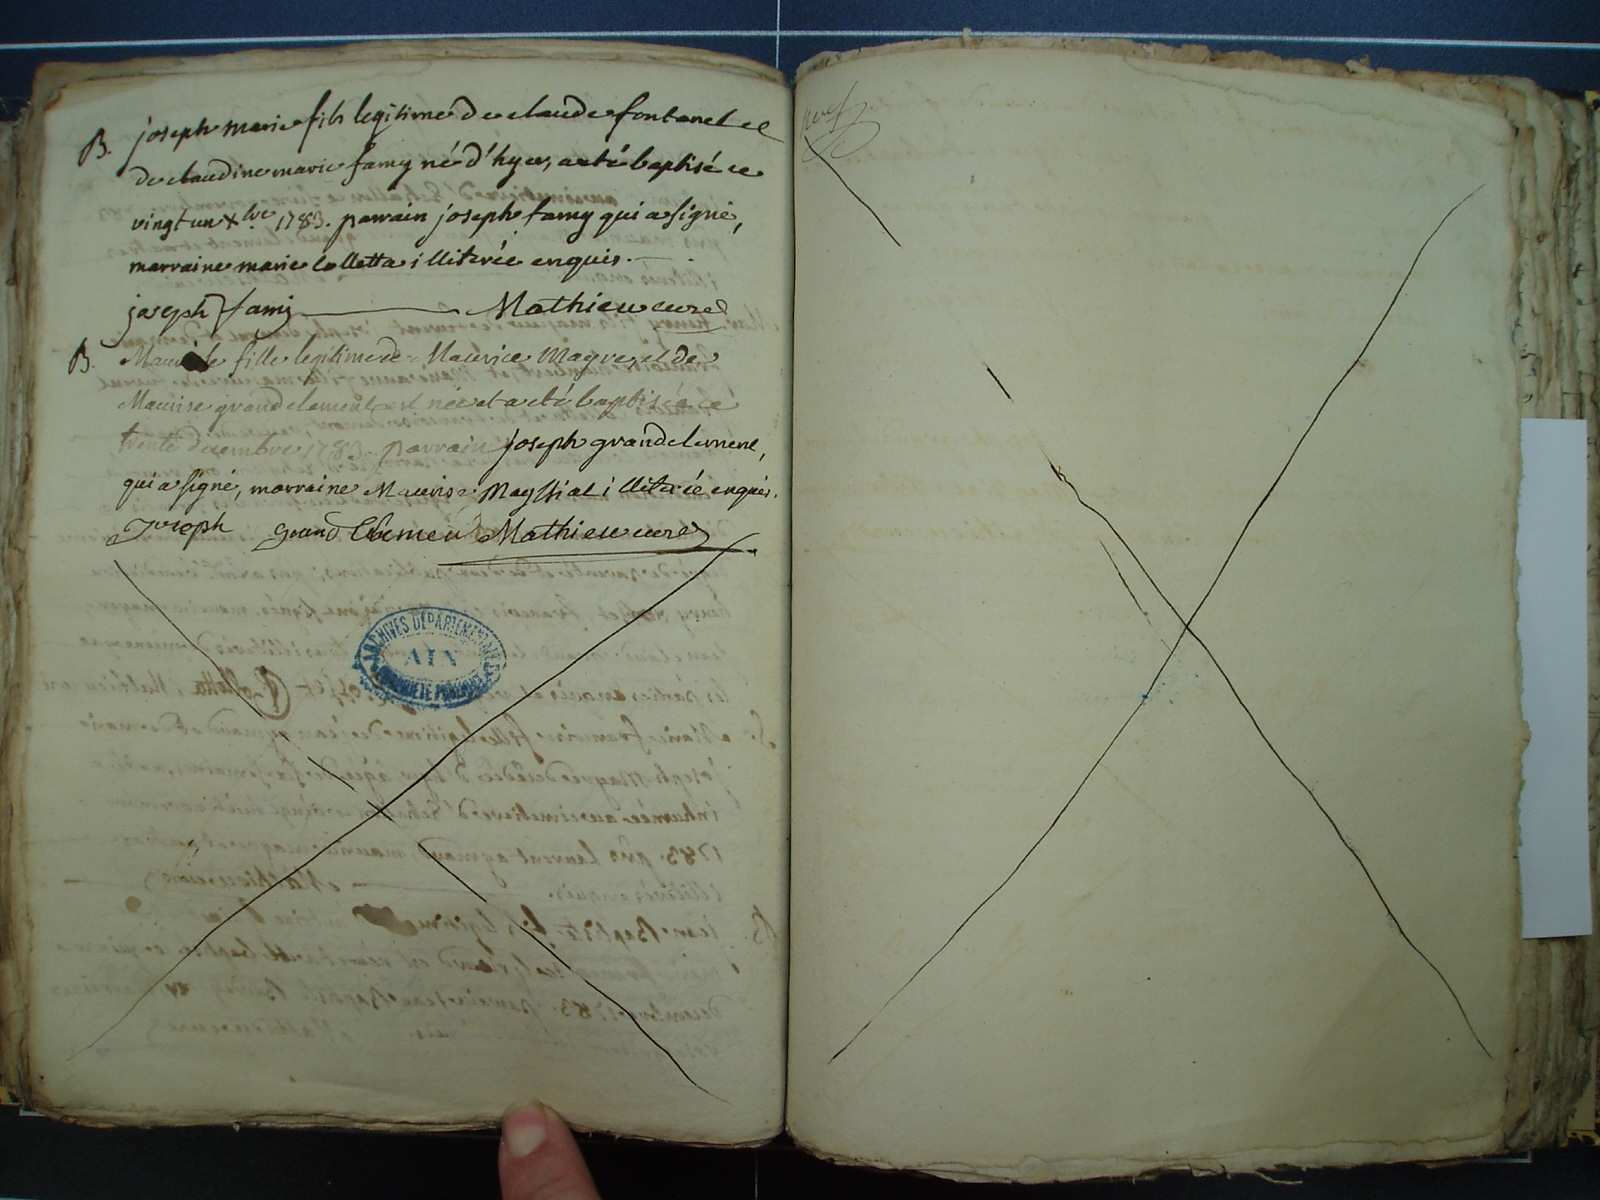 B. joseph marie fils legitime de claude fontanel et
de claudine marie famy né d'hyer, a eté baptisé ce
vingt un xbre 1783. parrain joseph famy qui a signé,
marraine marie Colletta illiterée enquis.
joseph famy Mathieu curé
B. fille legitime de Maurice Mayre, et de
Maurise grandclement est née et a eté baptisée ce
trente decembre 1783. parrain joseph grandclement,
qui a signé, marraine Maurise illiterée enquis.
Joseph grand Clement Mathieu curé
ARCHIVES DÉPARTEMENTALES
AIN
PROPRIÉTÉ PUBLIQUE
neuf